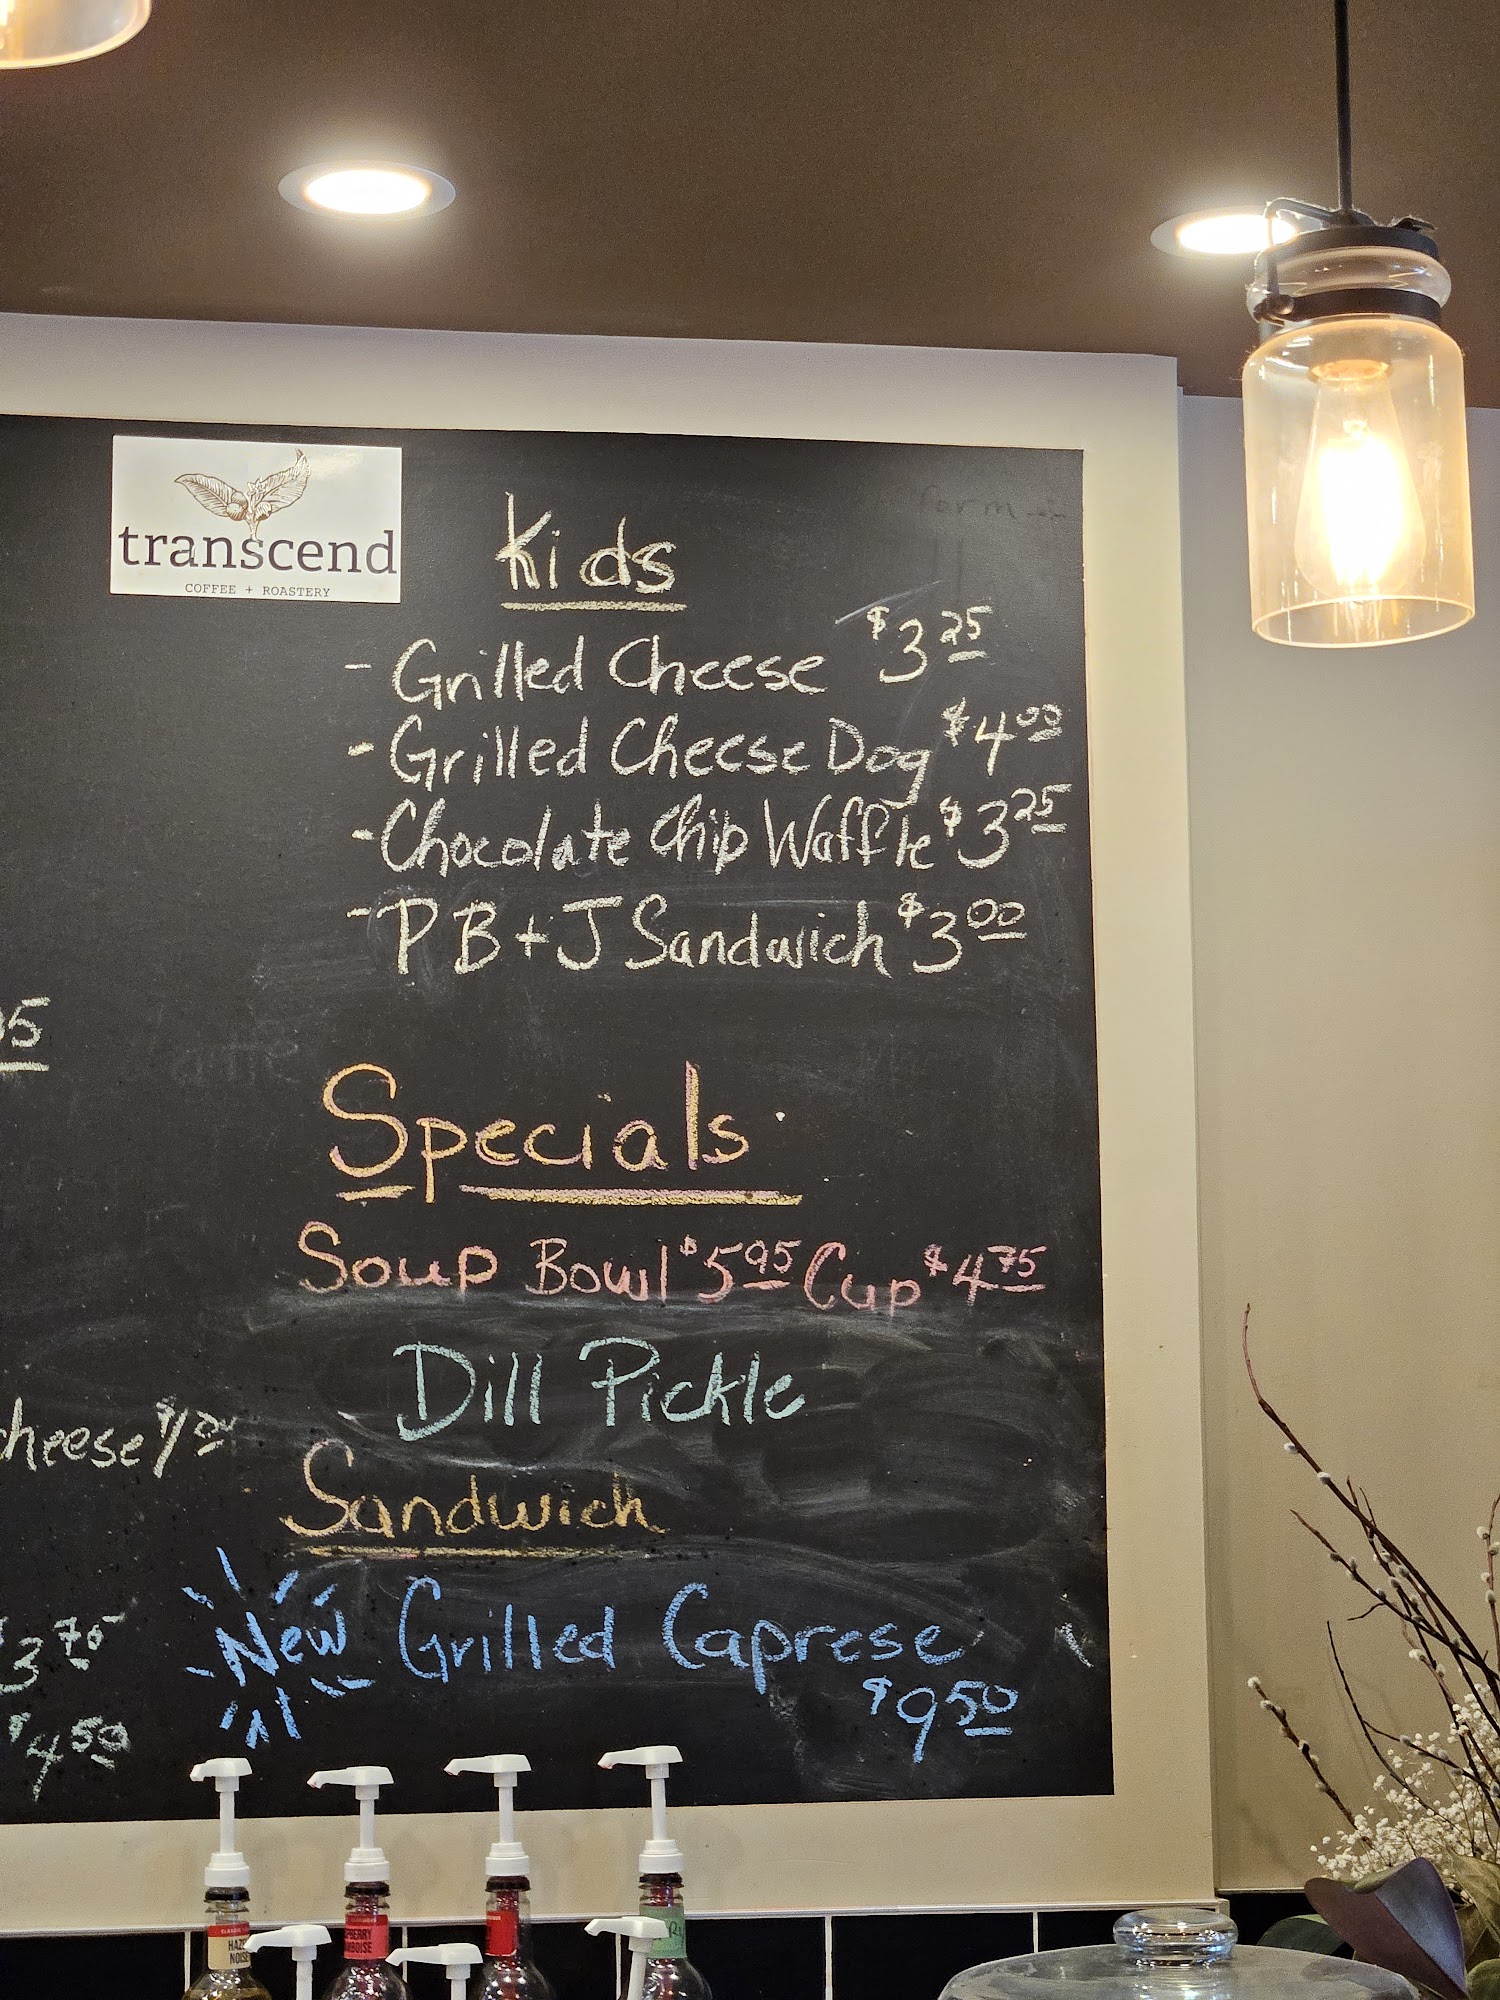 transcend
COFFEE + ROASTERY
Kids
- Grilled Cheese $3.25
- Grilled Cheese Dog $4.00
- Chocolate Chip Waffle $3.25
- PB+J Sandwich $3.00
Specials
Soup Bowl $5.95 Cup $4.75
Dill Pickle
cheese
Sandwich
New Grilled Caprese
$9.50
$3.75
$4.50
CLASSIC